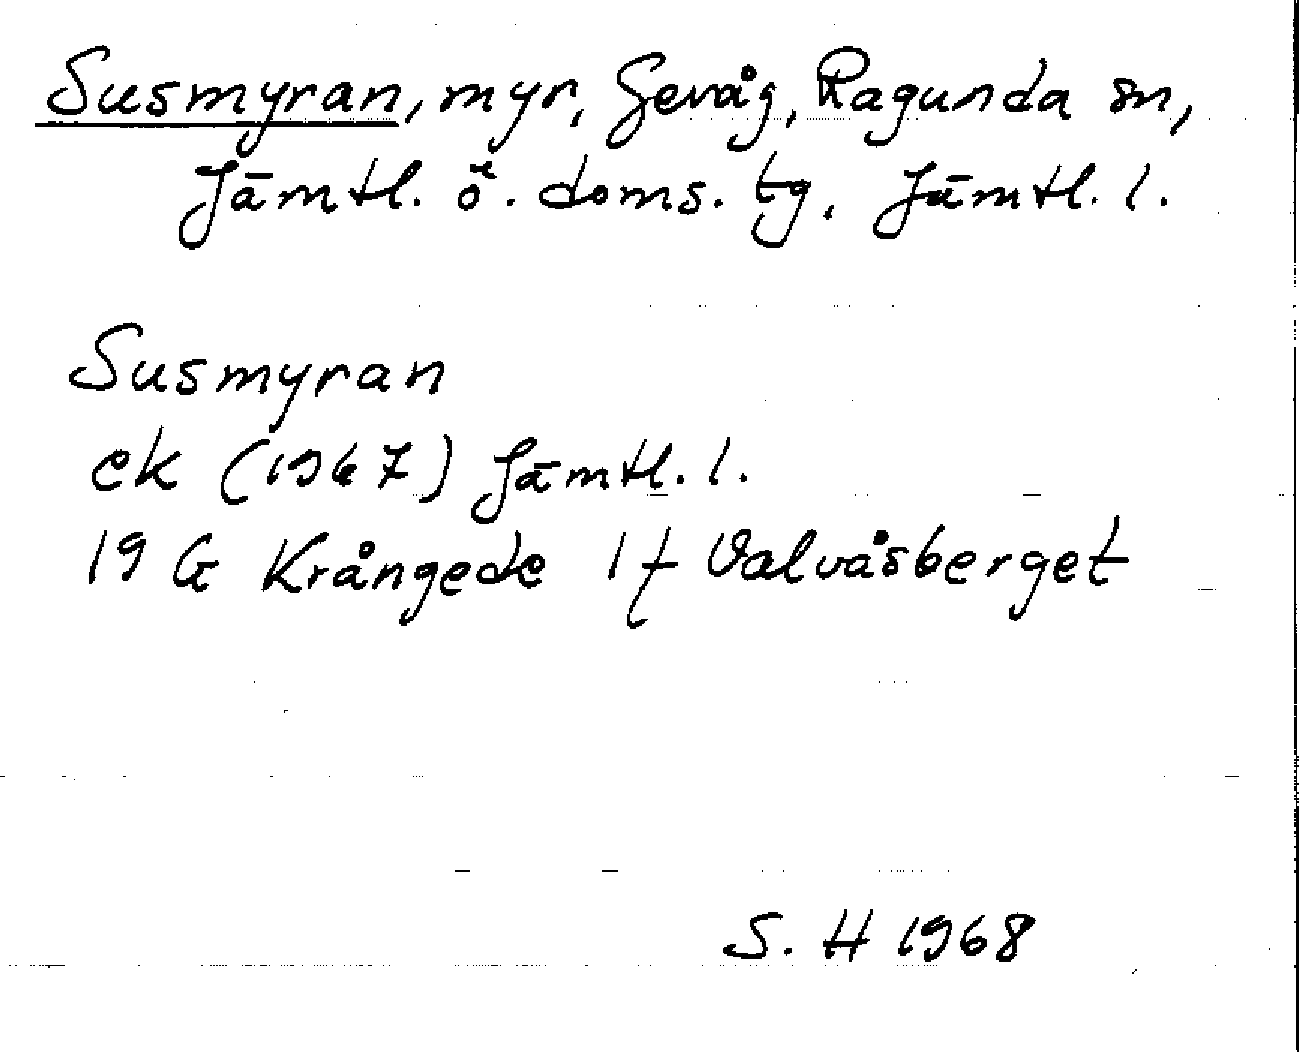 Susmyran, myr, Gevåg, Ragunda sn,
Jämtl. ö. doms. tg, Jämtl. l.
Susmyran
ek (1967) Jämtl. l.
19 G Krångede 1f Valvåsberget
S. H 1968